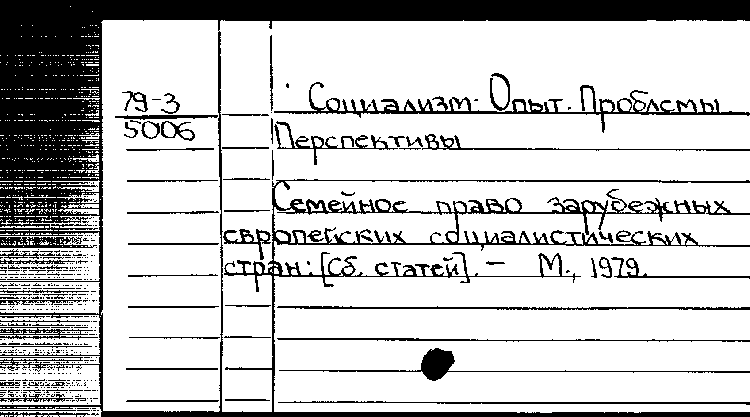 79-3
5006
Социализм: Опыт. Проблемы
Перспективы
Семейное право зарубежных
европейских социалистических
стран: [Сб. статей]. – М., 1979.